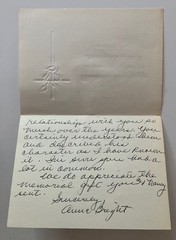 relationship with you so
much over the years. You
certainly understood him
and described his
character as I have known
it. I'm sure you had a
lot in common.
We do appreciate the
memorial gift you & Nancy
sent.
Sincerely
Anne Bright